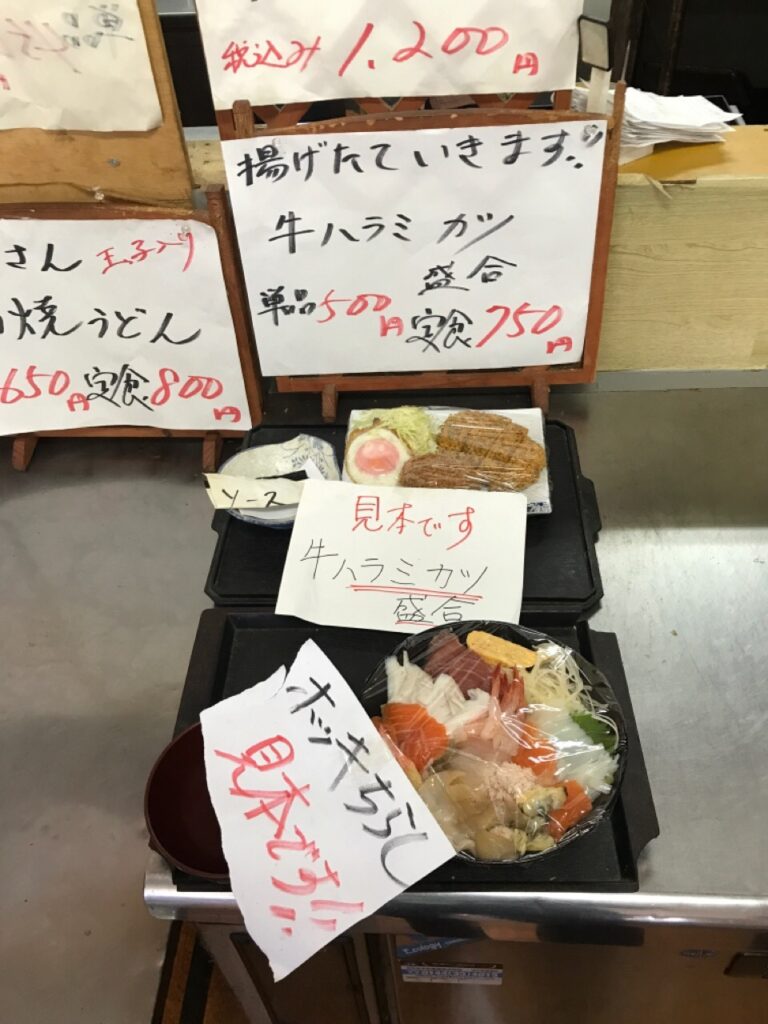 税込み 1,200円
揚げたていきます!!
牛ハラミ カツ
盛合
単品500円 定食750円
さん 玉子入り
焼うどん
650円 定食800円
ソース
見本です
牛ハラミカツ
盛合
ホッキちらし
見本です!!
Ecology